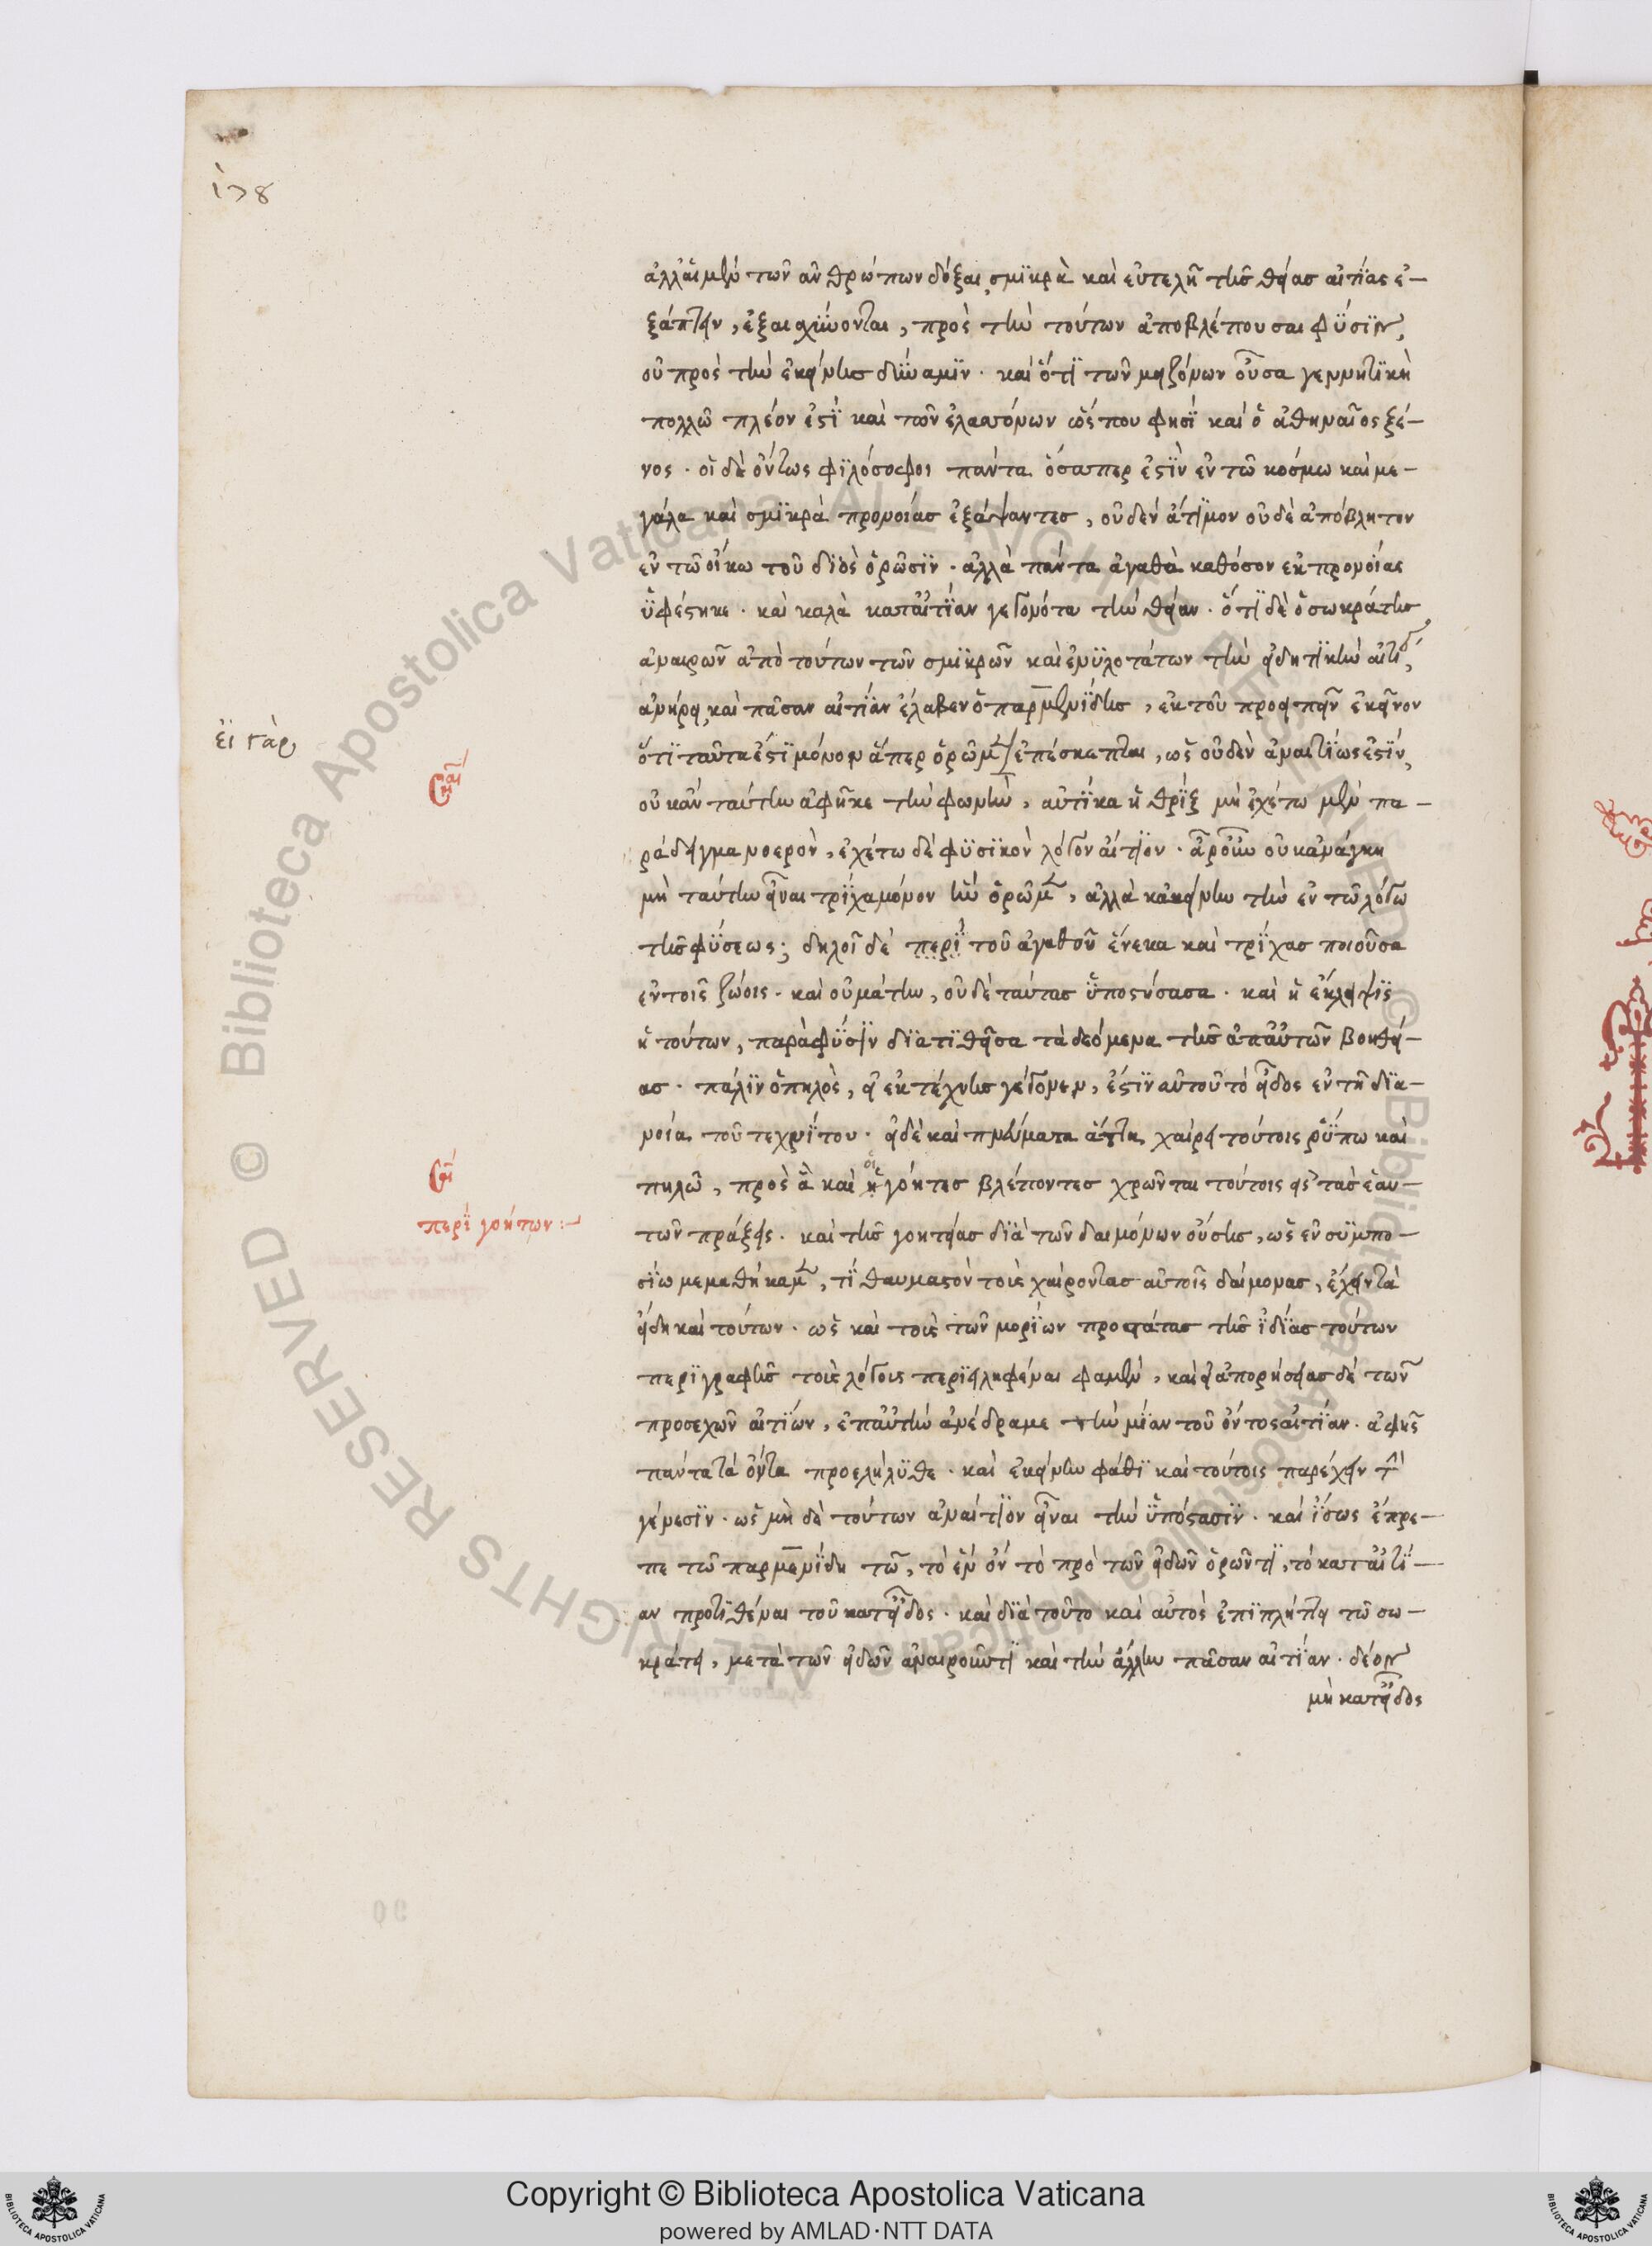 ἀλλ' αἱ μὲν τῶν ἀνθρώπων δόξαι, σμικρὰ καὶ εὐτελῆ τῆς θείας αἰτίας ἐ-
ξάπτειν, ἐξαισχύνονται, πρὸς τὴν τούτων ἀποβλέπουσαι φύσιν,
οὐ πρὸς τὴν ἐκείνης δύναμιν. καὶ ὅτι τῶν μειζόνων οὖσα γεννητικὴ
πολλῷ πλέον ἐστὶ καὶ τῶν ἐλαττόνων ὥς που φησὶ καὶ ὁ ἀθηναῖος ξέ-
νος. οἱ δὲ ὄντως φιλόσοφοι πάντα ὅσαπερ ἐστὶν ἐν τῷ κόσμω καὶ με-
γάλα καὶ σμικρὰ προνοίας ἐξάψαντες, οὐδὲν ἄτιμον οὐδὲ ἀπόβλητον
ἐν τῷ οἴκω τοῦ διὸς ὁρῶσιν. ἀλλὰ πάντα ἀγαθὰ καθόσον ἐκ προνοίας
ὑφέστηκε. καὶ καλὰ κατ' αἰτίαν γεγονότα τὴν θείαν. ὅτι δὲ ὁ σωκράτης
ἀναιρῶν ἀπὸ τούτων τῶν σμικρῶν καὶ ἐνυλοτάτων τὴν εἰδητικὴν αἰτίαν,
ἀνήρει καὶ πᾶσαν αἰτίαν ἔλαβεν ὁ παρμενίδης, ἐκ τοῦ προσειπεῖν ἐκεῖνον
ὅτι ταῦτα ἐστὶ μόνον ἅπερ ὁρῶμεν / ἐπέσκεπται, ὡς οὐδὲν ἀναιτίως ἐστίν,
οὐκ ἂν ταύτην ἀφῆκε τὴν φωνὴν, αὐτίκα ἡ θρὶξ μὴ ἐχέτω μὲν πα-
ράδειγμα νοερὸν, ἐχέτω δὲ φυσικὸν λόγον αἴτιον. ἆρ' οὖν οὐκ ἀνάγκη
μὴ ταύτην εἶναι τρίχα μόνον ἣν ὁρῶμεν, ἀλλὰ κἀκείνην τὴν ἐν τῷ λόγω
τῆς φύσεως; δηλοῖ δὲ περὶ τοῦ ἀγαθοῦ ἕνεκα καὶ τρίχας ποιοῦσα
ἐν τοῖς ζώοις. καὶ οὐ μάτην, οὐδὲ ταύτας ὑποστήσασα. καὶ ἡ ἔκλειψις
ἡ τούτων, παρὰ φύσιν διατιθεῖσα τὰ δεόμενα τῆς ἀπ' αὐτῶν βοηθεί-
ας. πάλιν ὁ πηλὸς, εἰ ἐκ τέχνης γέγονεν, ἔστιν αὐτοῦ τὸ εἶδος ἐν τῇ δια-
νοία τοῦ τεχνίτου. εἰ δὲ καὶ πνεύματα ἄττα χαίρει τούτοις ῥύπω καὶ
πηλῷ, πρὸς ἃ καὶ οἱ γόητες βλέποντες χρῶνται τούτοις εἰς τὰς ἑαυ-
τῶν πράξεις. καὶ τῆς γοητείας διὰ τῶν δαιμόνων οὔσης, ὡς ἐν συμπο-
σίω μεμαθήκαμεν, τί θαυμαστὸν τοὺς χαίροντας αὐτοῖς δαίμονας, ἔχειν τὰ
εἴδη καὶ τούτων. ὡς καὶ τοὺς τῶν μορίων προστάτας τῆς ἰδίας τούτων
περιγραφῆς τοὺς λόγους περιειληφέναι φαμὲν, καὶ εἰ ἀπορήσειας δὲ τῶν
προσεχῶν αἰτίων, ἐπ' αὐτὴν ἀνέδραμε τὴν μίαν τοῦ ὄντος αἰτίαν. ἀφ' ἧς
πάντα τὰ ὄντα προελήλυθε. καὶ ἐκείνην φάθι καὶ τούτοις παρέχειν τὴν
γένεσιν. ὡς μὴ δὲ τούτων ἀναίτιον εἶναι τὴν ὑπόστασιν. καὶ ἴσως ἔπρε-
πε τῷ παρμενίδη τῷ, τὸ ἓν ὂν τὸ πρὸ τῶν εἰδῶν ὁρῶντι, τὸ κατ' αἰτί-
αν προτιθέναι τοῦ κατ' εἶδος. καὶ διὰ τοῦτο καὶ αὐτὸς ἐπιπλήττει τῷ σω-
κράτει, μετὰ τῶν εἰδῶν ἀναιροῦντι καὶ τὴν ἄλλην πᾶσαν αἰτίαν. δέον
μὴ κατ' εἶδος
εἰ γάρ
σημείωσαι
ση
περὶ γοήτων:-
© Biblioteca Apostolica Vaticana ALL RIGHTS RESERVED
Copyright © Biblioteca Apostolica Vaticana
powered by AMLAD·NTT DATA
BIBLIOTECA APOSTOLICA VATICANA
BIBLIOTECA APOSTOLICA VATICANA